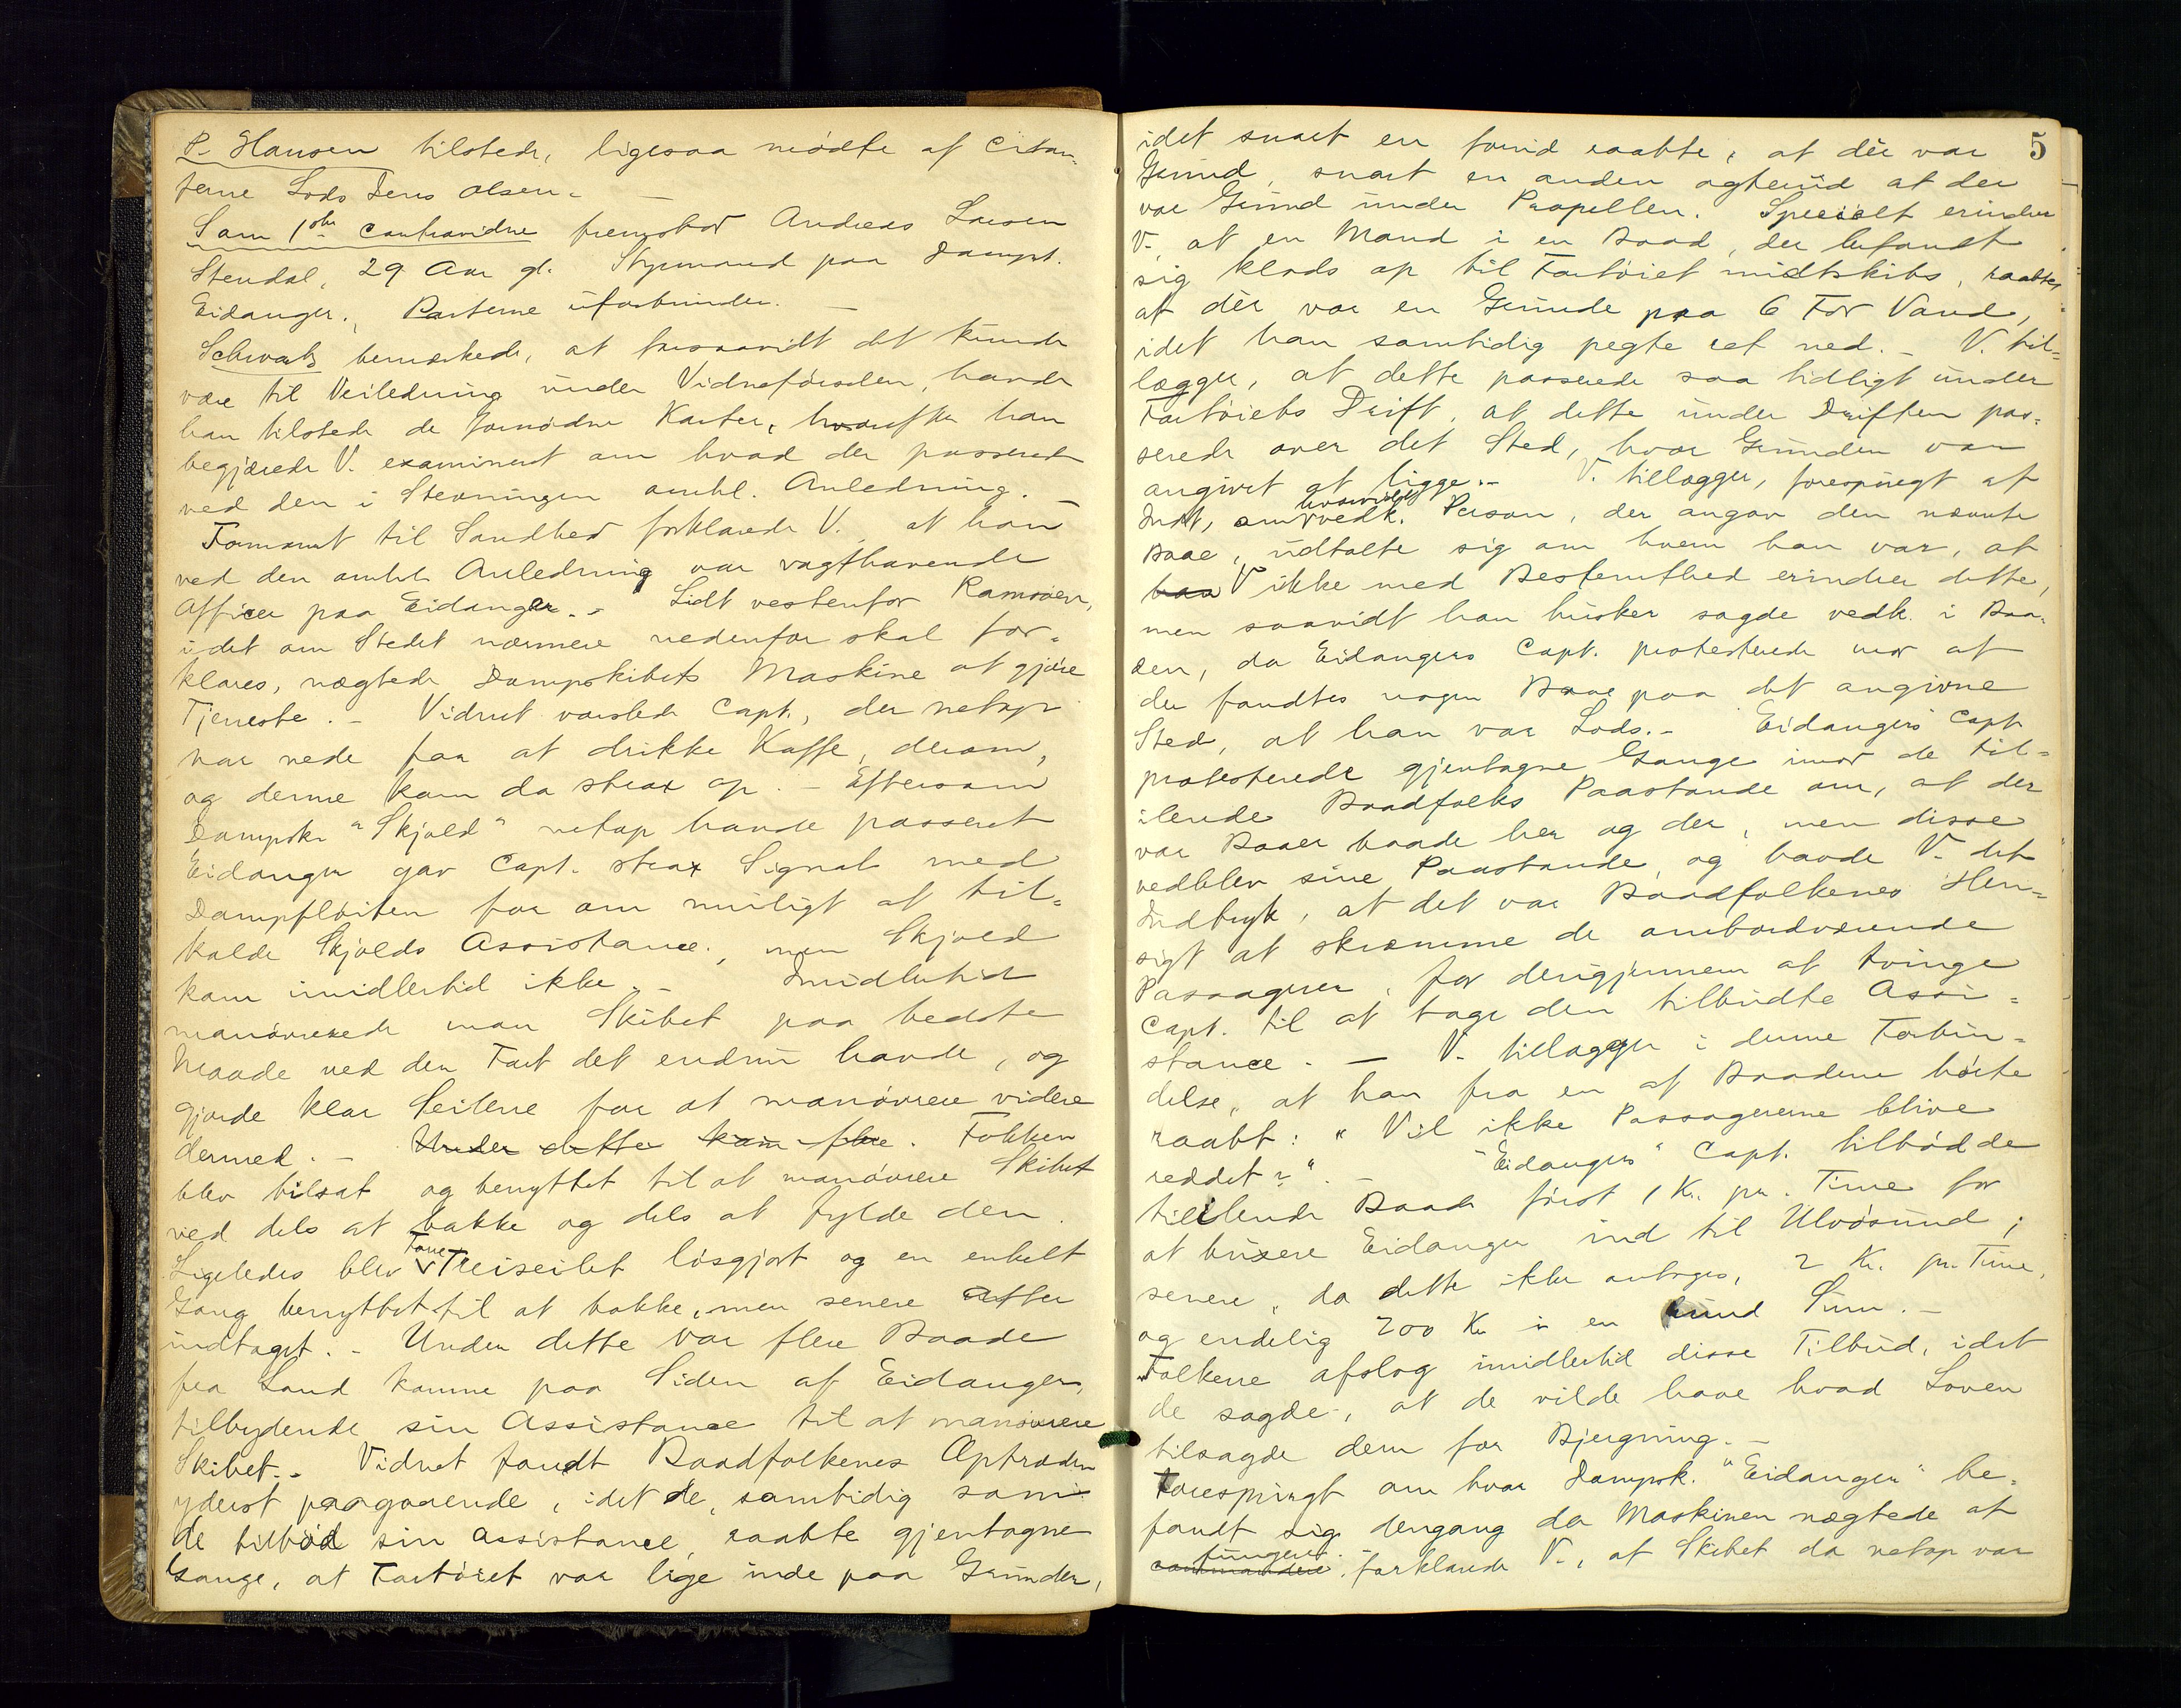 P. Hansen tilstede, ligesaa mødte af Citan-
terne Lods Jens Olsen. –
Som 1ste Contravidne fremstod Andreas Larsen
Stendal, 29 Aar gl. Styrmand paa Dampsk.
Eidanger., Parterne uforbunden. –
Schwartz bemærkede, at forsaavidt det kunde
være til Veiledning under Vidneførselen, havde
han tilstede de fornødne Karter, hvorefter han
begjærede V. examineret om hvad der passerede
ved den i Stevningen omhl. Anledning. –
Formanet til Sandhed forklarede V. at han
ved den omhl. Anledning var vagthavende
Officer paa Eidanger. – Lidt vestenfor Ramsøen,
idet om Stedet nærmere nedenfor skal for-
klares, nægtede Dampskibets Maskine at gjøre
Tjeneste. – Vidnet varslede Capt., der netop
var nede for at drikke Kaffe, derom,
og denne kom da strax op. – Eftersom
Dampsk. "Skjold" netop havde passeret
Eidanger gav Capt. strax Signal med
Dampfløiten for om muligt at til-
kalde Skjolds Assistance, men Skjold
kom imidlertid ikke. – Imidlertid
manøvrerede man Skibet paa bedste
Maade ved den Fart det endnu havde, og
gjorde klar Seilene for at manøvrere videre
dermed. – Under dette kom flere. Fokken
blev tilsat og benyttet til at manøvrere Skibet
ved dels at bakke og dels at fylde den.
Ligeledes blev Treiseilet løsgjort og en enkelt
Gang benyttet til at bakke, men senere atter
indtaget. – Under dette var flere Baade
fra Land komne paa Siden af Eidanger,
tilbydende sin Assistance til at manøvrere
Skibet. – Vidnet fandt Baadfolkenes Optræden
yderst paagaaende, idet de, samtidig som
de tilbød sin Assistance, raabte gjentagne
Gange, at Fartøiet var lige inde paa Grunder,
5
idet snart en forud raabte, at der var
Grund, snart en anden agterud at der
var Grund under Propellen. Specielt erindrer
V. at en Mand i en Baad, der befandt
sig klods op til Fartøiet midtskibs, raabte,
at der var en Grunde paa 6 Fod Vand,
idet han samtidig pegte ret ned. – V. til-
lægger, at dette passerede saa tidligt under
Fartøiets Drift, at dette under Driften pas-
serede over det Sted, hvor Grunden var
angivet at ligge. – V. tillægger, forespurgt af
Indst., om hvorvidt vedk. Person, der angav den nævnte
Baae, udtalte sig om hvem han var, at
han V ikke med Bestemthed erindrer dette,
men saavidt han husker sagde vedk. i Baa-
den, da Eidangers Capt. protesterede mod at
der fandtes nogen Baae paa det angivne
Sted, at han var Lods. – Eidangers Capt
protesterede gjentagne Gange imod de til-
ilende Baadfolks Paastande om, at der
var Baaer baade her og der, men disse
vedblev sine Paastande, og havde V. det
Indtryk, at det var Baadfolkenes Hen-
sigt at skræmme de ombordværende
Passagerer, for derigjennem at tvinge
Capt. til at tage den tilbudte Assi-
stance. – V. tillægger i denne Forbin-
delse, at han fra en af Baadene hørte
raabt: "Vil ikke Passagererne blive
reddet?". – "Eidangers" Capt. tilbødde
tililende Baade først 1 Kr. pr. Time for
at buxere Eidanger ind til Ulvøsund;
senere, da dette ikke antoges, 2 Kr. pr. Time,
og endelig 200 Kr i en rund Sum. –
Folkene afslog imidlertid disse Tilbud, idet
de sagde, at de vilde have hvad Loven
tilsagde dem for Bjergning. –
Forespurgt om hvor Dampsk. "Eidanger" be-
fandt sig dengang da Maskinen nægtede at
fungere, forklarede V., at Skibet da netop var